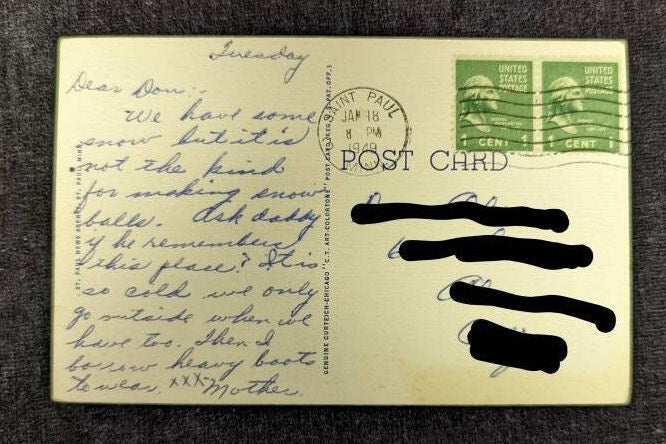 Tuesday
Dear Don:-
We have some
snow but it is
not the kind
for making snow
balls. Ask daddy
if he remembers
this place? It is
so cold we only
go outside when we
have too. Then I
borrow heavy boots
to wear. xxx Mother.
ST. PAUL NEWS AGENCY, ST. PAUL, MINN.
GENUINE CURTEICH-CHICAGO "C.T. ART-COLORTONE" POST CARD (REG. U.S. PAT. OFF.)
SAINT PAUL
JAN 18
8 PM
1949
MINN.
POST CARD
UNITED
STATES
POSTAGE
1 CENT 1
UNITED
STATES
POSTAGE
1 CENT 1